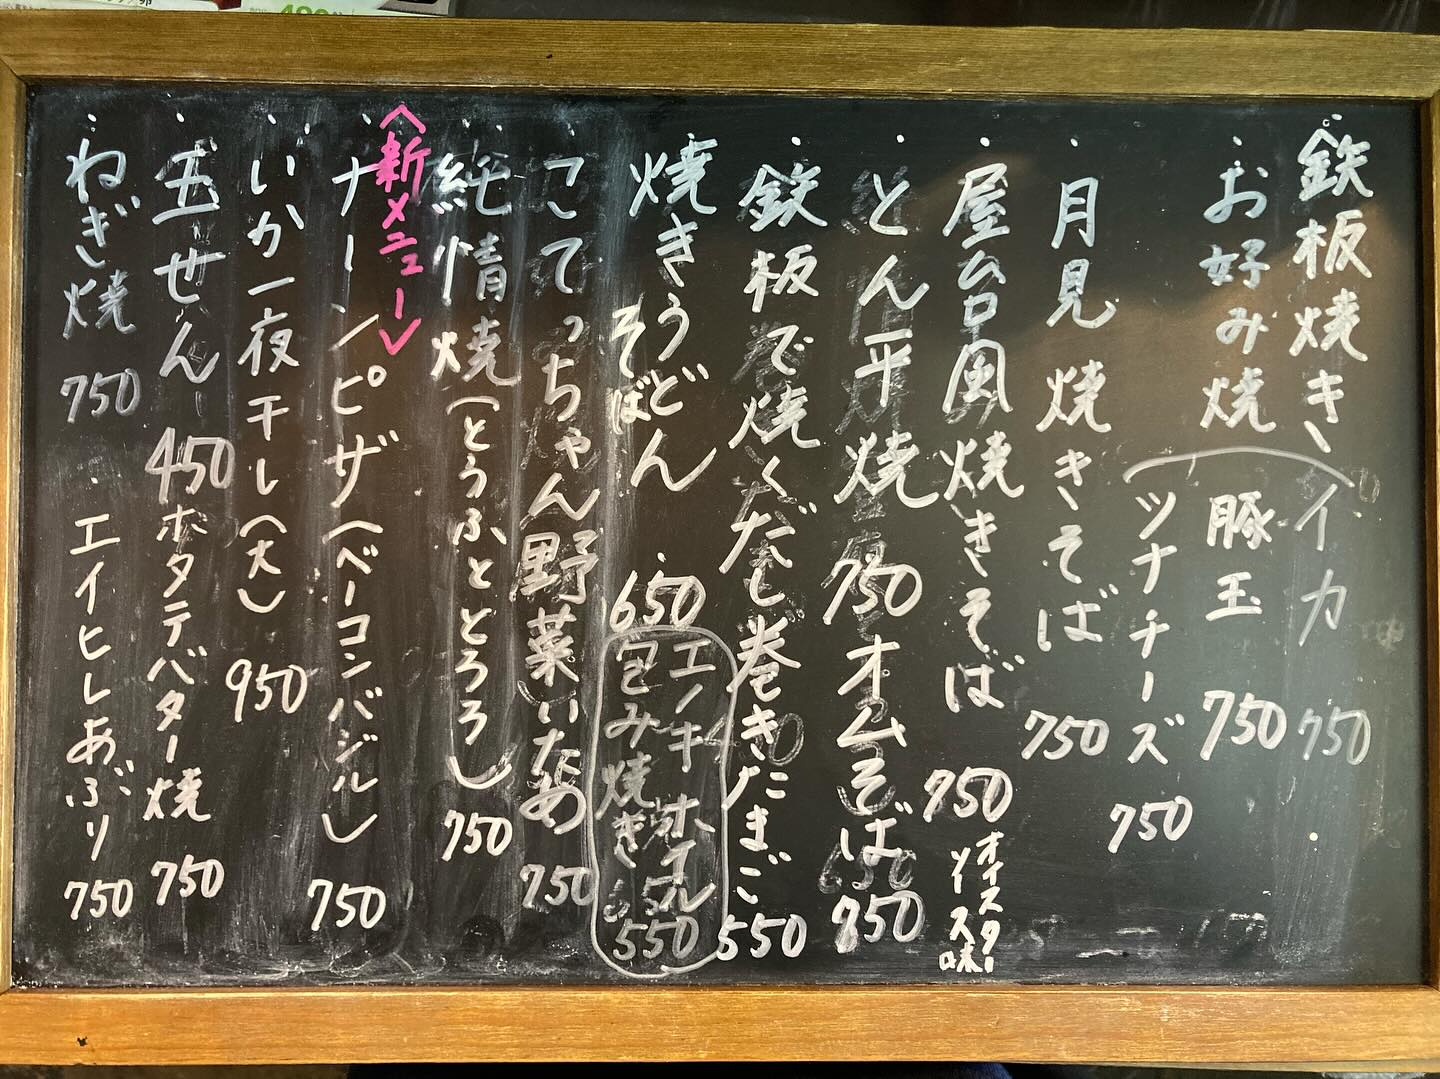 鉄板焼き
・お好み焼(イカ 750
豚玉 750
ツナチーズ 750
・月見焼きそば 750
・屋台風焼きそば 750
オイスターソース味
・とん平焼 750
オムそば 850
・鉄板で焼くだし巻きたまご 550
・焼きうどん
そば
・650
エノキホイル
包み焼き
550
・こてっちゃん野菜いため 750
・純情焼(とうふととろろ) 750
<新メニュー>
・ナーンピザ(ベーコンバジル) 750
・いか一夜干し(大) 950
・玉せん 450
・ホタテバター焼 750
・ねぎ焼 750
・エイヒレあぶり 750